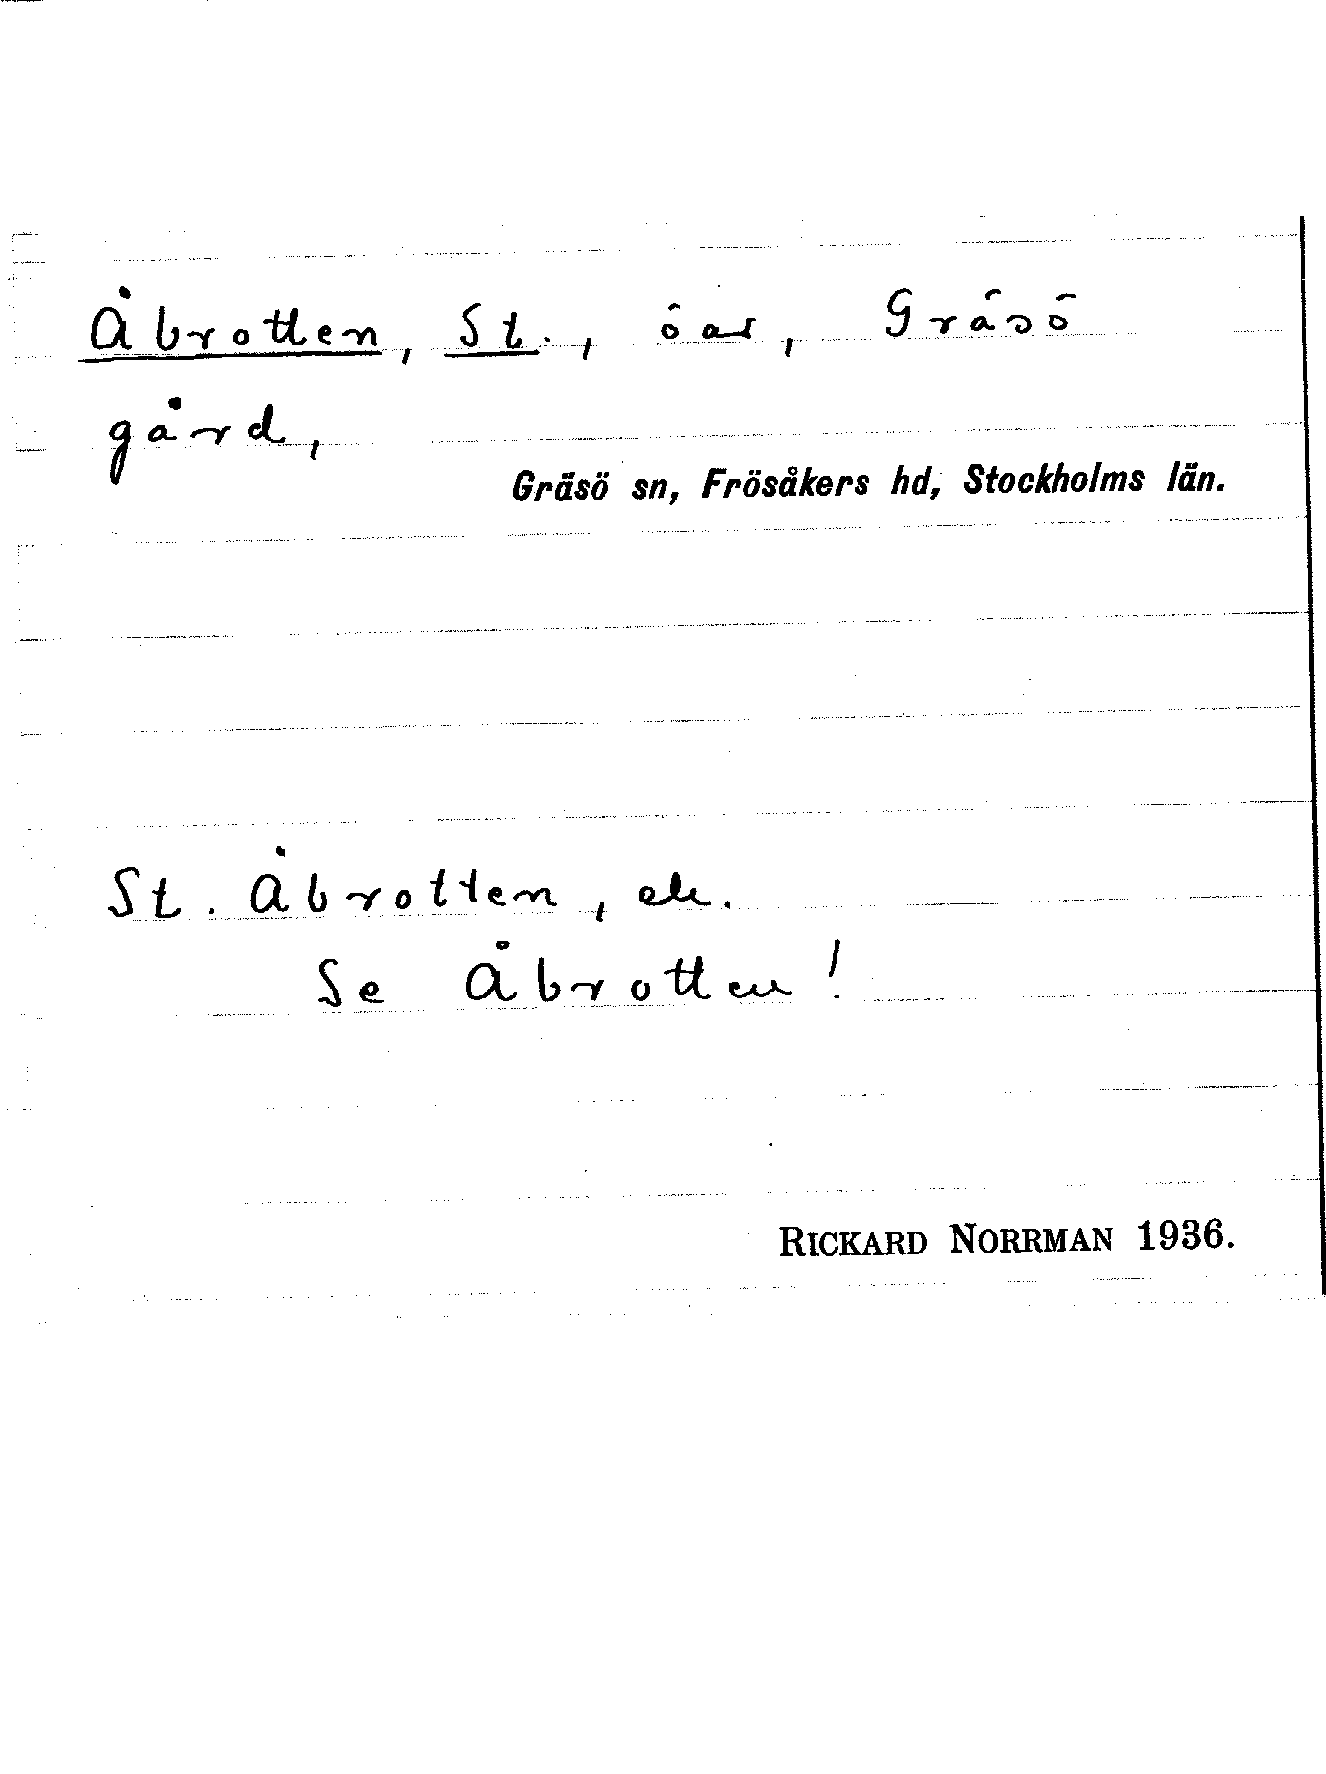 Åbrotten, St., öar, Gräsö
gård,
Gräsö sn, Frösåkers hd, Stockholms län.
St. Åbrotten, ek.
Se Åbrotten!
RICKARD NORRMAN 1936.